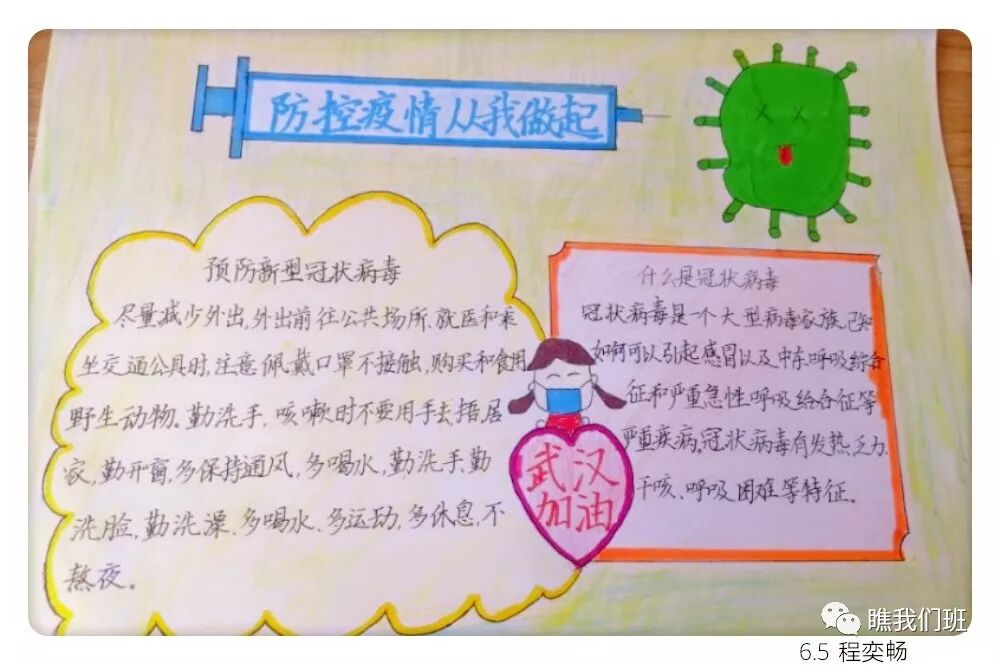 防控疫情从我做起
预防新型冠状病毒
尽量减少外出,外出前往公共场所、就医和乘
坐交通公具时,注意佩戴口罩不接触,购买和食用
野生动物。勤洗手,咳嗽时不要用手去捂,居
家,勤开窗,多保持通风,多喝水,勤洗手,勤
洗脸,勤洗澡、多喝水、多运动,多休息,不
熬夜。
什么是冠状病毒
冠状病毒是一个大型病毒家族,已知
如何可以引起感冒以及中东呼吸综合
征和严重急性呼吸综合征等
严重疾病。冠状病毒有发热、乏力、
干咳、呼吸困难等特征.
武汉
加油
瞧我们班
6.5 程奕畅